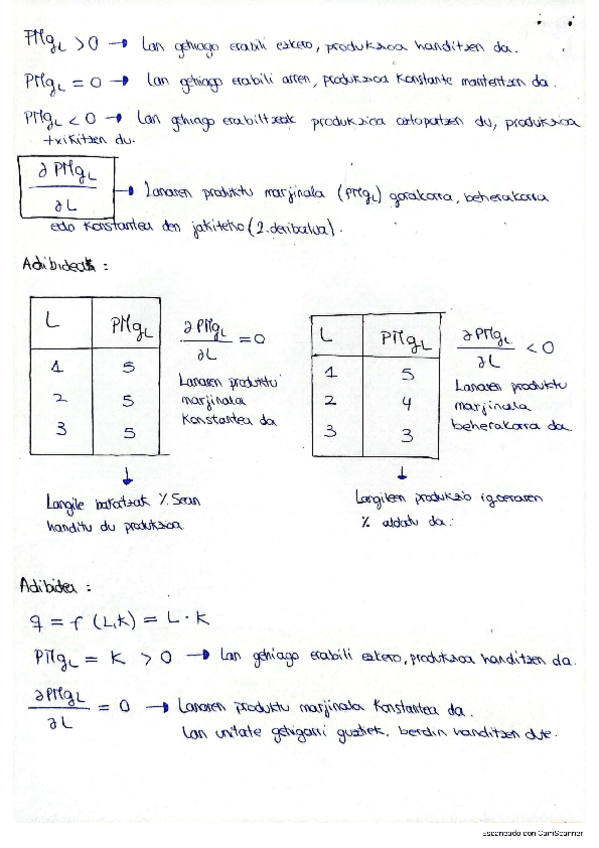 PMg_L > 0 → Lan gehiago erabili ezkero, produkzioa handitzen da.
PMg_L = 0 → Lan gehiago erabili arren, produkzioa konstante mantentzen da.
PMg_L < 0 → Lan gehiago erabiltzeak produkzioa oztopatzen du, produkzioa
txikitzen du.
∂PMg_L / ∂L → Lanaren produktu marjinala (PMg_L) gorakorra, beherakorra
edo konstantea den jakiteko (2. deribatua).
Adibideak :
L PMg_L
1 5
2 5
3 5
∂PMg_L / ∂L = 0
Lanaren produktu
marjinala
konstantea da
↓
Langile bakoitzak %5ean
handitu du produkzioa
L PMg_L
1 5
2 4
3 3
∂PMg_L / ∂L < 0
Lanaren produktu
marjinala
beherakorra da.
↓
Langileen produkzio igoeraren
% aldatu da.
Adibidea :
q = f (L,K) = L · K
PMg_L = K > 0 → Lan gehiago erabili ezkero, produkzioa handitzen da.
∂PMg_L / ∂L = 0 → Lanaren produktu marjinala konstantea da.
Lan unitate gehigarri guztiek, berdin handitzen dute.
Escaneado con CamScanner